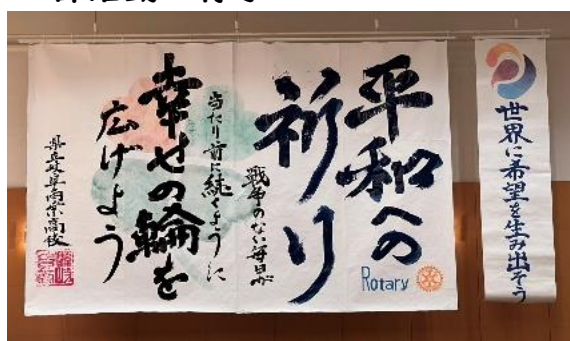 平和への
祈り
戦争のない毎日が
当たり前に続くように
幸せの輪を
広げよう
県立岐阜商業高校
Rotary
世界に希望を生み出そう